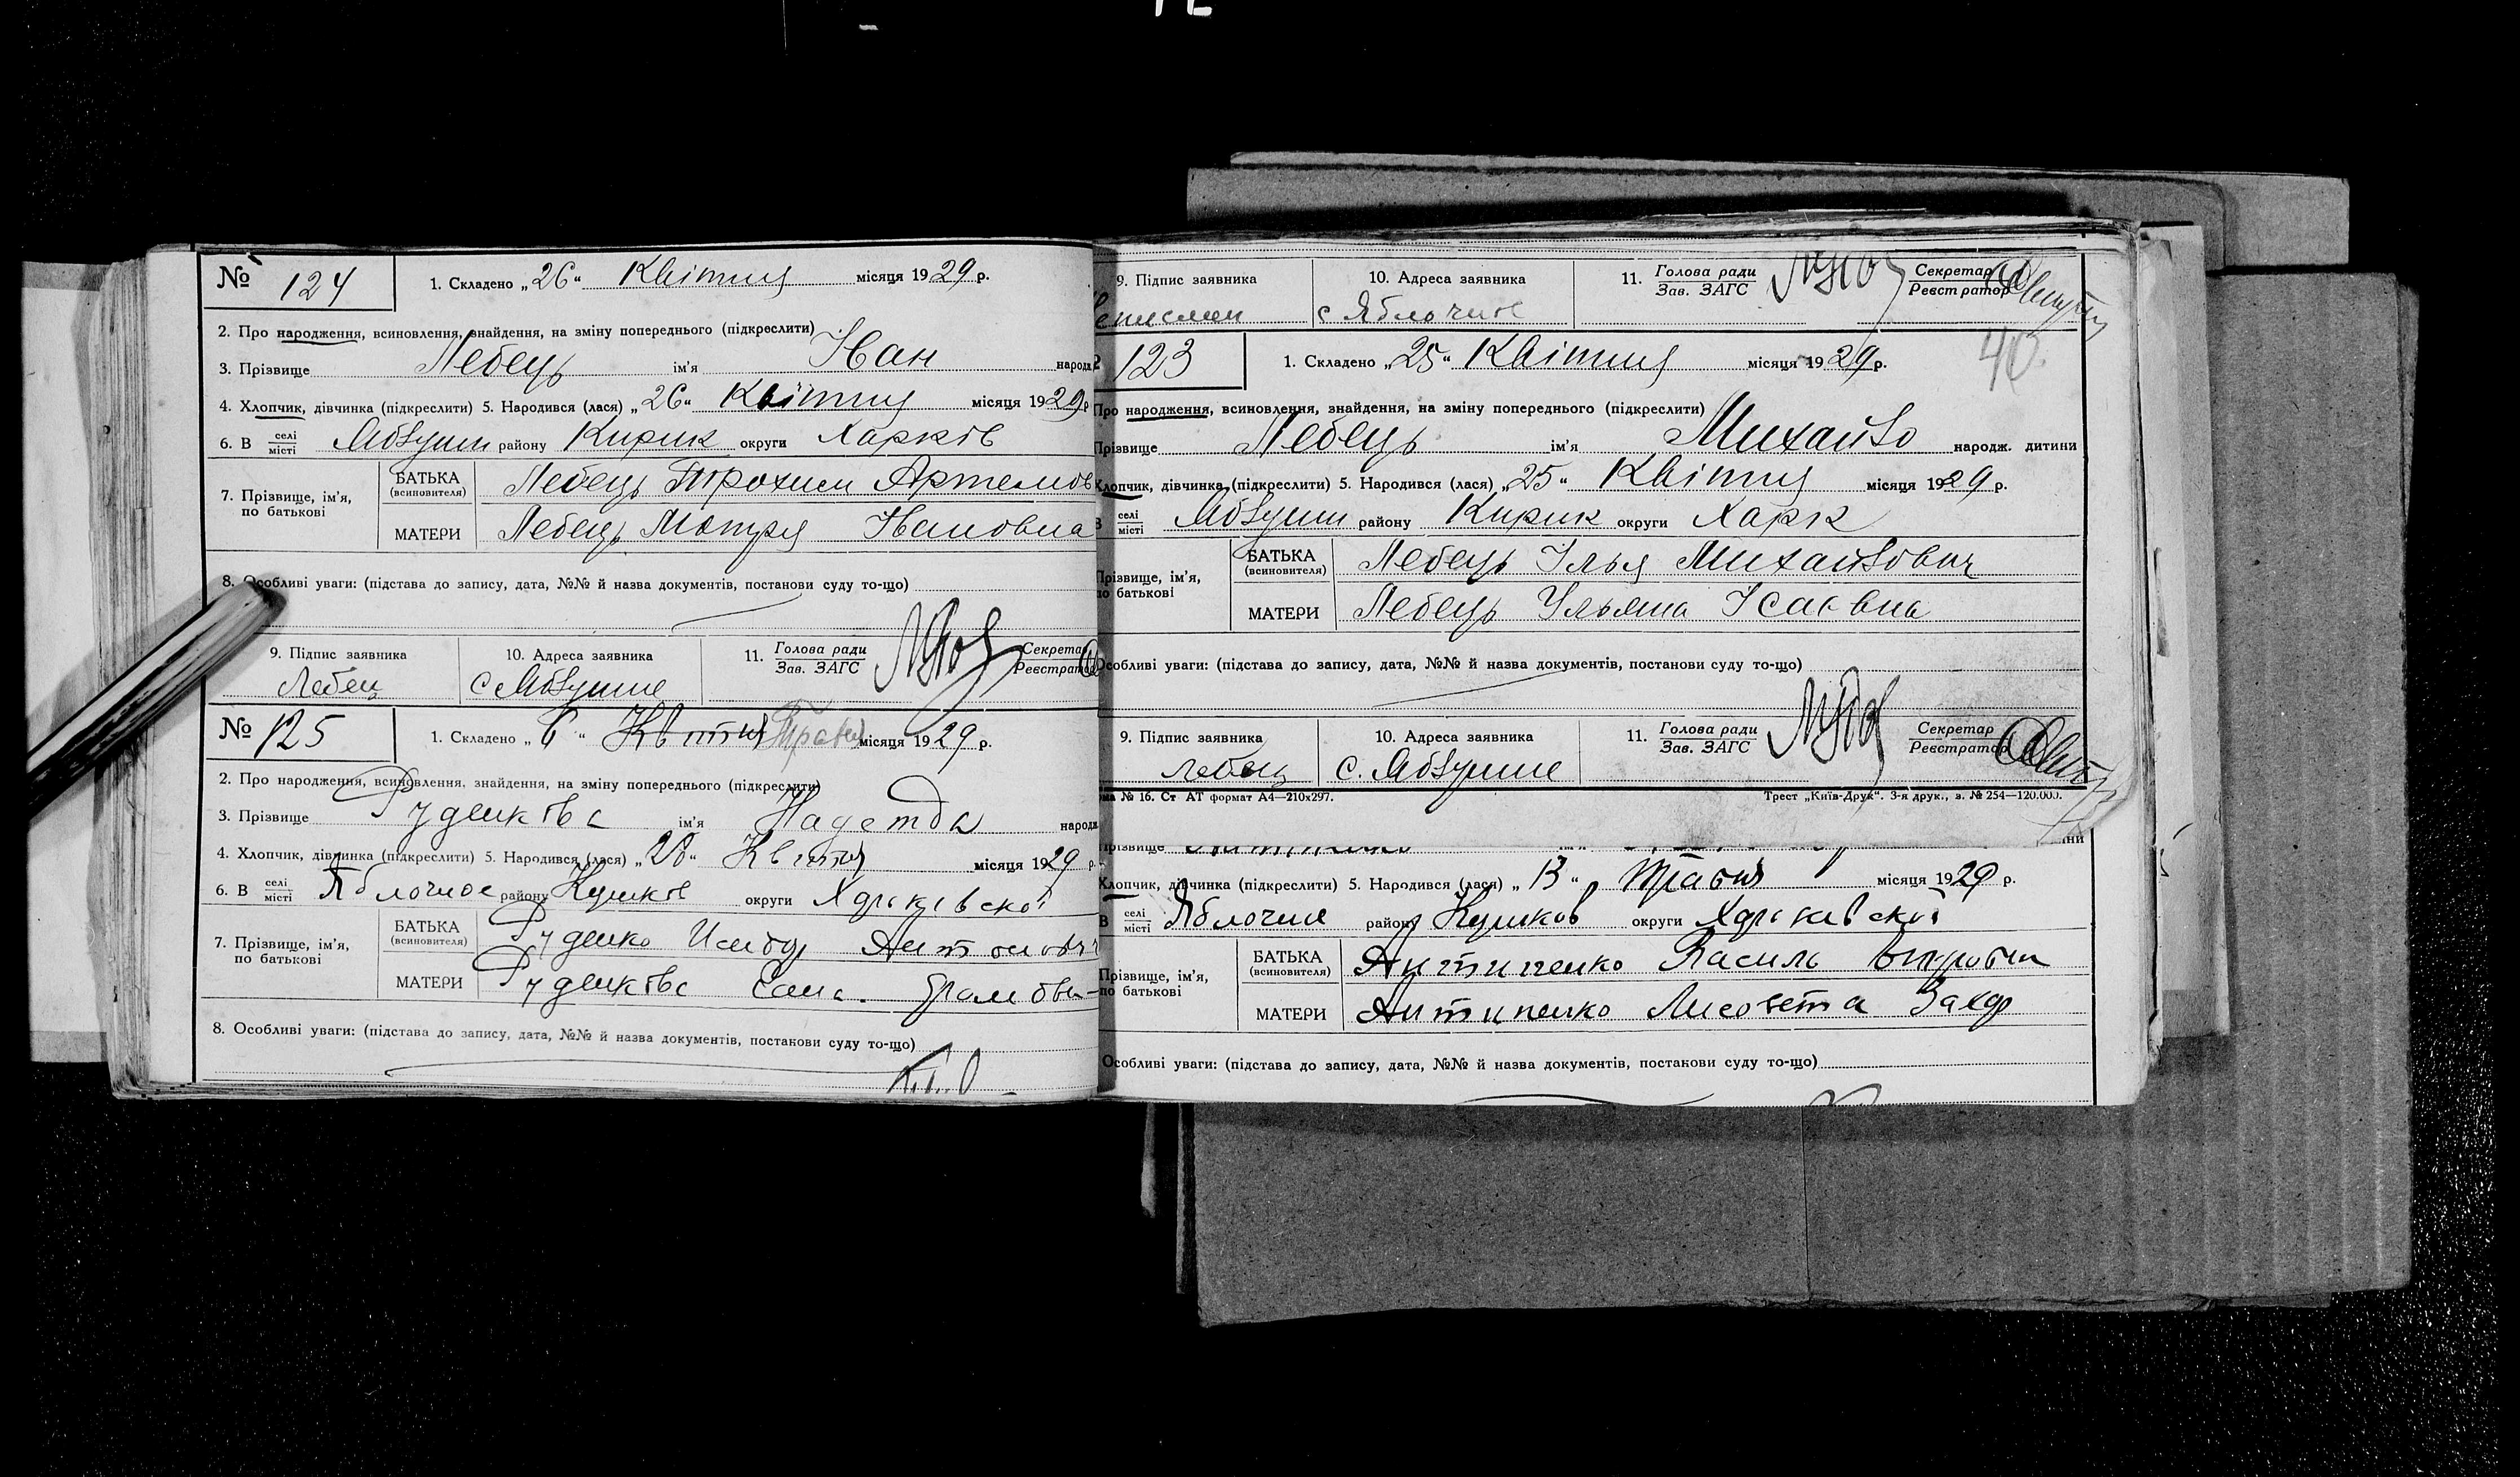 № 124
1. Складено „26“ Квітня місяця 1929 р.
2. Про народження, всиновлення, знайдення, на зміну попереднього (підкреслити)
3. Прізвище Лебець ім'я Іван народж
4. Хлопчик, дівчинка (підкреслити) 5. Народився (лася) „26“ Квітня місяця 1929 р
6. В селі місті району Кирик округи Харків
7. Прізвище, ім'я, по батькові
БАТЬКА (всиновителя) Лебець Трохим Артемов
МАТЕРИ Лебець Мотря Івановна
8. Особливі уваги: (підстава до запису, дата, №№ й назва документів, постанови суду то-що)
9. Підпис заявника 10. Адреса заявника 11. Голова ради Зав. ЗАГС Секретар Реєстратор
Лебец с
№ 125
1. Складено „6“ Квітня Травня місяця 1929 р.
2. Про народження, всиновлення, знайдення, на зміну попереднього (підкреслити)
3. Прізвище Руденкова ім'я Надежда народж
4. Хлопчик, дівчинка (підкреслити) 5. Народився (лася) „28“ Квітня місяця 1929 р.
6. В селі місті Яблочное району округи Харківської
7. Прізвище, ім'я, по батькові
БАТЬКА (всиновителя) Руденко Исидор Антонович
МАТЕРИ Руденкова
8. Особливі уваги: (підстава до запису, дата, №№ й назва документів, постанови суду то-що)
9. Підпис заявника 10. Адреса заявника 11. Голова ради Зав. ЗАГС Секретар Реєстратор
с Яблочне
123
1. Складено „25“ Квітня місяця 1929 р.
40.
Про народження, всиновлення, знайдення, на зміну попереднього (підкреслити)
Прізвище Лебець ім'я Михайло народж. дитини
Хлопчик, дівчинка (підкреслити) 5. Народився (лася) „25“ Квітня місяця 1929 р.
В селі місті району Кирик округи Харк
Прізвище, ім'я, по батькові
БАТЬКА (всиновителя) Лебець Ілья Михайлович
МАТЕРИ Лебець Ульяна Ісаєвна
Особливі уваги: (підстава до запису, дата, №№ й назва документів, постанови суду то-що)
9. Підпис заявника 10. Адреса заявника 11. Голова ради Зав. ЗАГС Секретар Реєстратор
Лебец с.
ма № 16. Ст АТ формат А4—210х297. Трест „Київ-Друк“. 3-я друк., з. № 254—120.000.
Хлопчик, дівчинка (підкреслити) 5. Народився (лася) „13“ Травня місяця 1929 р.
В селі місті Яблочне району округи Харківської
Прізвище, ім'я, по батькові
БАТЬКА (всиновителя) Антипенко Василь
МАТЕРИ Антипенко Лисовета Захар
Особливі уваги: (підстава до запису, дата, №№ й назва документів, постанови суду то-що)